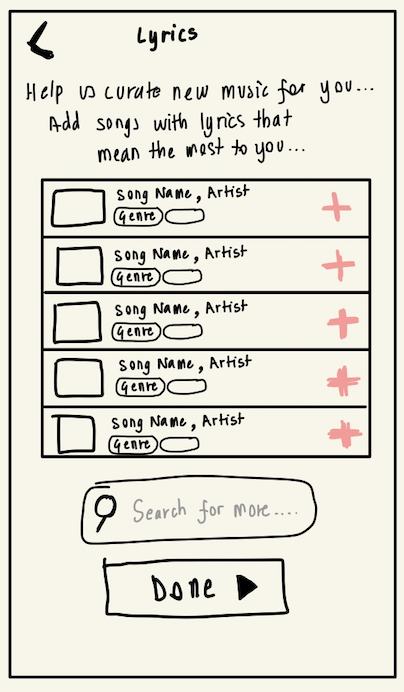 Lyrics
Help us curate new music for you...
Add songs with lyrics that
mean the most to you...
Song Name, Artist
Genre
Song Name, Artist
Genre
Song Name, Artist
Genre
Song Name, Artist
Genre
Song Name, Artist
Genre
Search for more....
Done